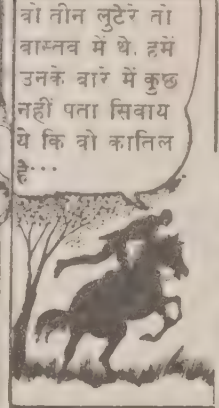 वो तीन लुटेरे तो
वास्तव में थे. हमें
उनके बारे में कुछ
नहीं पता सिवाय
ये कि वो कातिल
है···